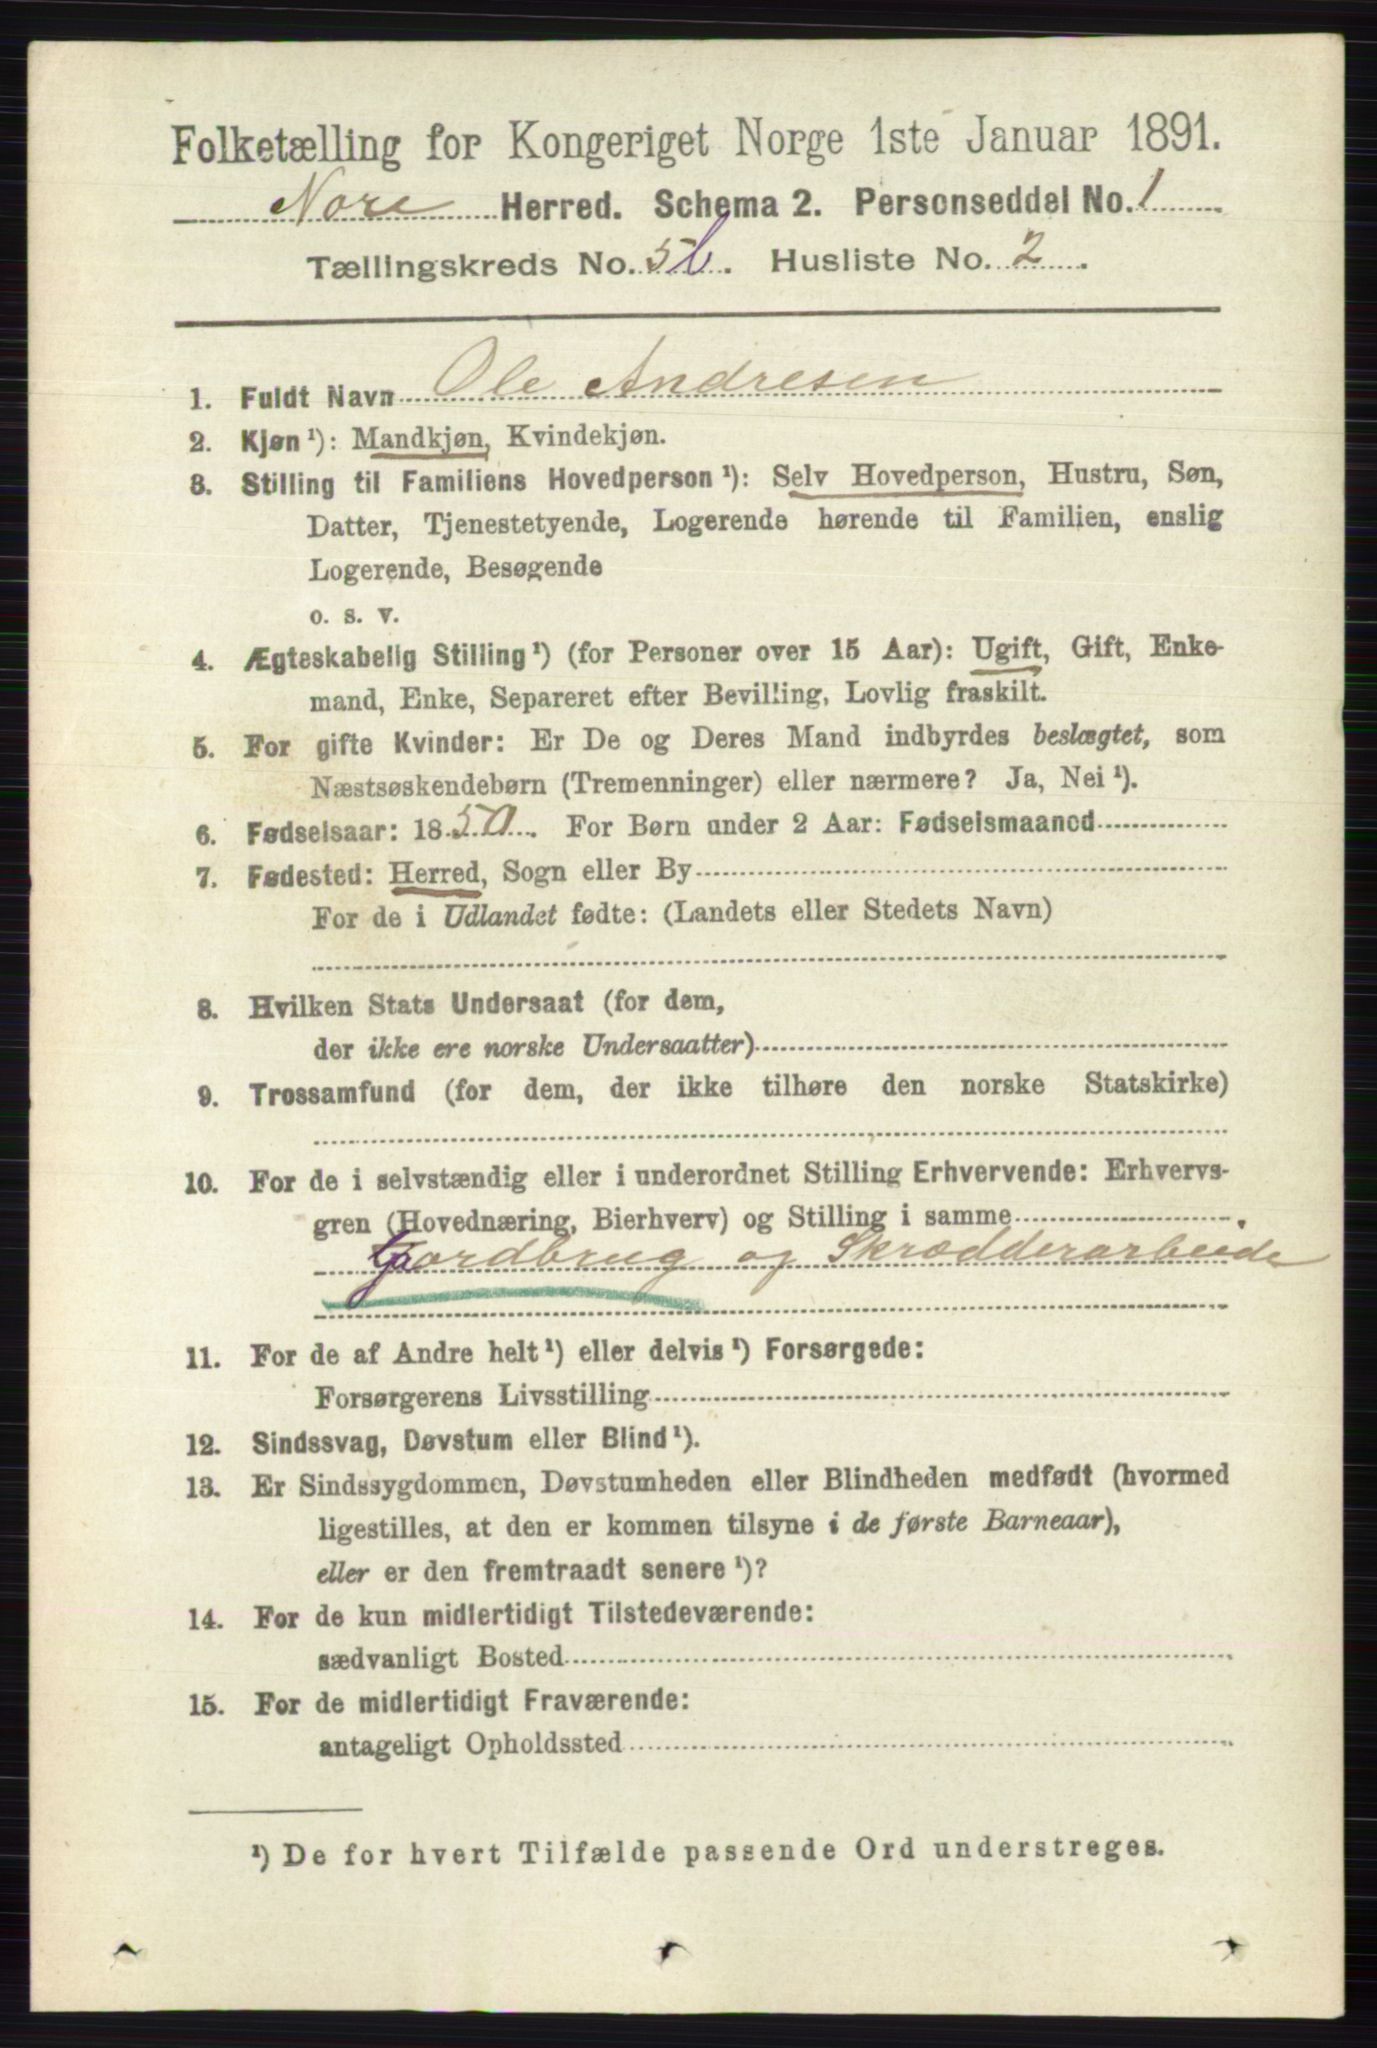 Folketælling for Kongeriget Norge 1ste Januar 1891.
Nore Herred. Schema 2. Personseddel No. 1
Tællingskreds No. 5b. Husliste No. 2.
1. Fuldt Navn Ole Andresen
2. Kjøn ¹): Mandkjøn, Kvindekjøn.
3. Stilling til Familiens Hovedperson ¹): Selv Hovedperson, Hustru, Søn,
Datter, Tjenestetyende, Logerende hørende til Familien, enslig
Logerende, Besøgende
o. s. v.
4. Ægteskabelig Stilling ¹) (for Personer over 15 Aar): Ugift, Gift, Enke-
mand, Enke, Separeret efter Bevilling, Lovlig fraskilt.
5. For gifte Kvinder: Er De og Deres Mand indbyrdes beslægtet, som
Næstsøskendebørn (Tremenninger) eller nærmere? Ja, Nei ¹).
6. Fødselsaar: 1850. For Børn under 2 Aar: Fødselsmaaned
7. Fødested: Herred, Sogn eller By
For de i Udlandet fødte: (Landets eller Stedets Navn)
8. Hvilken Stats Undersaat (for dem,
der ikke ere norske Undersaatter)
9. Trossamfund (for dem, der ikke tilhøre den norske Statskirke)
10. For de i selvstændig eller i underordnet Stilling Erhvervende: Erhvervs-
gren (Hovednæring, Bierhverv) og Stilling i samme
Gaardbrug og Skrædderarbeide
11. For de af Andre helt ¹) eller delvis ¹) Forsørgede:
Forsørgerens Livsstilling
12. Sindssvag, Døvstum eller Blind ¹).
13. Er Sindssygdommen, Døvstumheden eller Blindheden medfødt (hvormed
ligestilles, at den er kommen tilsyne i de første Barneaar),
eller er den fremtraadt senere ¹)?
14. For de kun midlertidigt Tilstedeværende:
sædvanligt Bosted
15. For de midlertidigt Fraværende:
antageligt Opholdssted
¹) De for hvert Tilfælde passende Ord understreges.